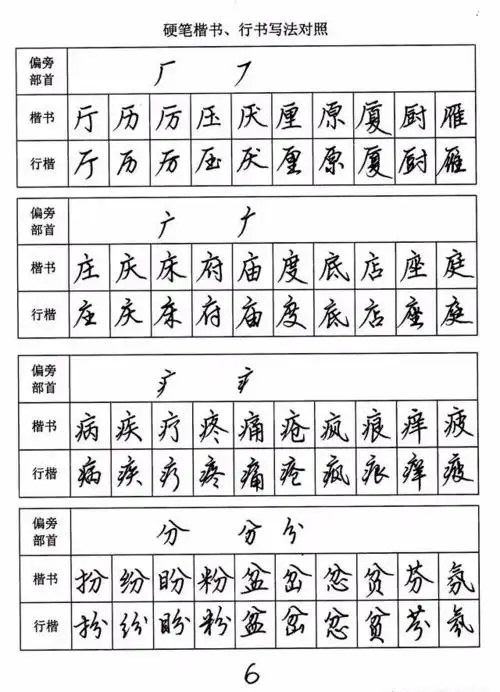 硬笔楷书、行书写法对照
偏旁部首 厂 厂
楷书 厅 历 厉 压 厌 厘 原 厦 厨 雁
行楷 厅 历 厉 压 厌 厘 原 厦 厨 雁
偏旁部首 广 广
楷书 庄 庆 床 府 庙 度 底 店 座 庭
行楷 庄 庆 床 府 庙 度 底 店 座 庭
偏旁部首 疒 疒
楷书 病 疾 疗 疼 痛 疮 疯 痕 痒 疲
行楷 病 疾 疗 疼 痛 疮 疯 痕 痒 疲
偏旁部首 分 分 分
楷书 扮 纷 盼 粉 盆 岔 忿 贫 芬 氛
行楷 扮 纷 盼 粉 盆 岔 忿 贫 芬 氛
6